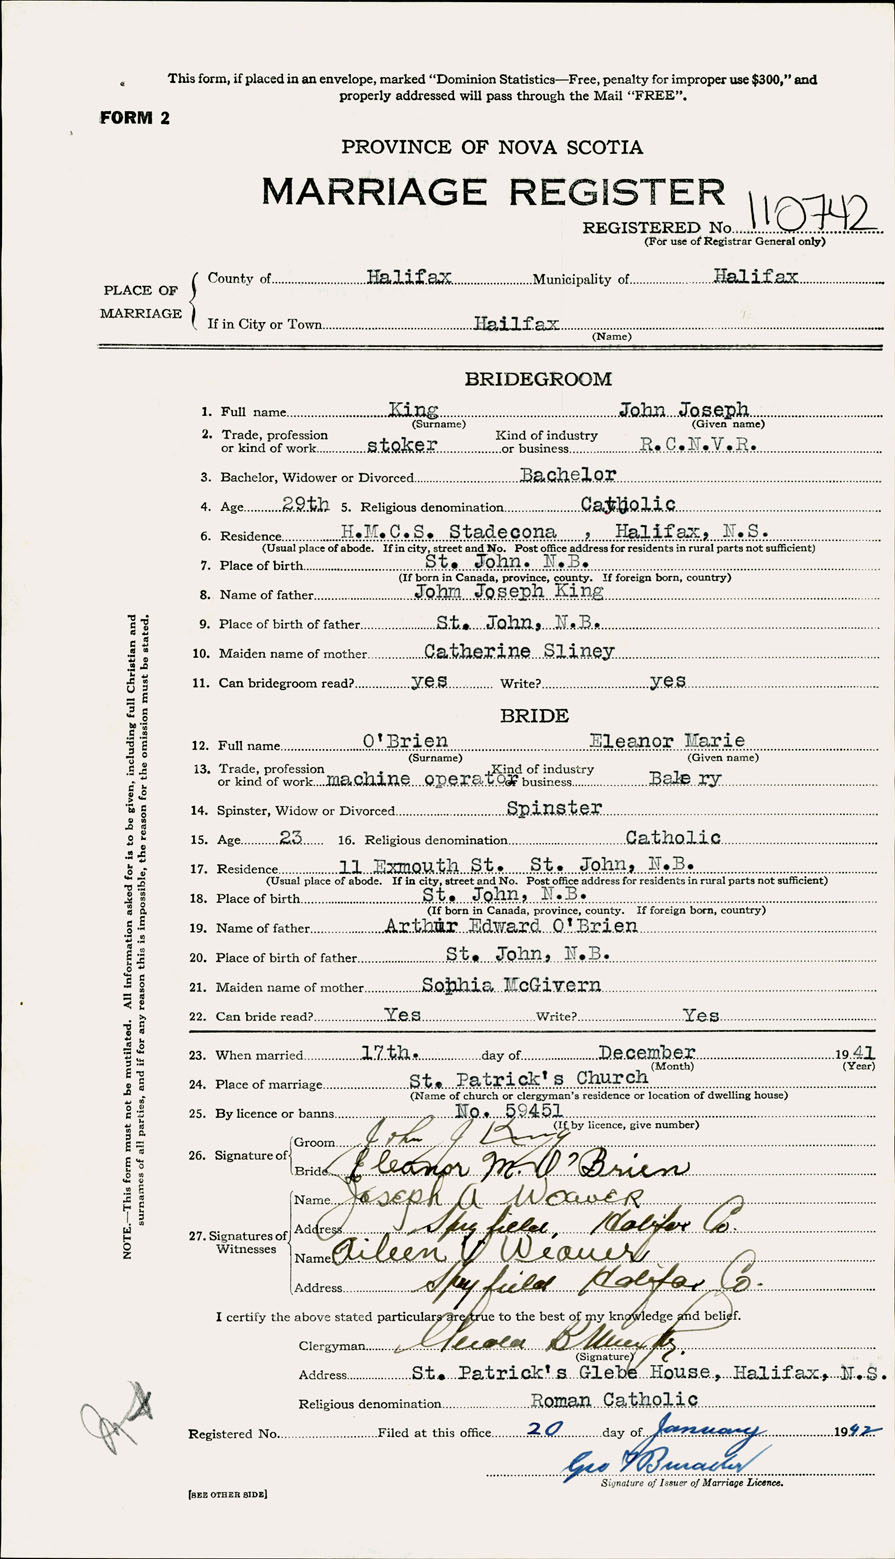 This form, if placed in an envelope, marked "Dominion Statistics—Free, penalty for improper use $300," and
properly addressed will pass through the Mail "FREE".
FORM 2
PROVINCE OF NOVA SCOTIA
MARRIAGE REGISTER
REGISTERED No. 110742
(For use of Registrar General only)
PLACE OF MARRIAGE
County of Halifax Municipality of Halifax
If in City or Town Hailfax
(Name)
BRIDEGROOM
1. Full name King John Joseph
(Surname) (Given name)
2. Trade, profession or kind of work stoker Kind of industry or business R.C.N.V.R.
3. Bachelor, Widower or Divorced Bachelor
4. Age 29th 5. Religious denomination Catholic
6. Residence H.M.C.S. Stadecona , Halifax, N.S.
(Usual place of abode. If in city, street and No. Post office address for residents in rural parts not sufficient)
7. Place of birth St. John. N.B.
(If born in Canada, province, county. If foreign born, country)
8. Name of father Johm Joseph King
9. Place of birth of father St. John, N.B.
10. Maiden name of mother Catherine Sliney
11. Can bridegroom read? yes Write? yes
BRIDE
12. Full name O'Brien Eleanor Marie
(Surname) (Given name)
13. Trade, profession or kind of work machine operator Kind of industry or business Bakery
14. Spinster, Widow or Divorced Spinster
15. Age 23 16. Religious denomination Catholic
17. Residence 11 Exmouth St. St. John, N.B.
(Usual place of abode. If in city, street and No. Post office address for residents in rural parts not sufficient)
18. Place of birth St. John, N.B.
(If born in Canada, province, county. If foreign born, country)
19. Name of father Arthur Edward O'Brien
20. Place of birth of father St. John, N.B.
21. Maiden name of mother Sophia McGivern
22. Can bride read? Yes Write? Yes
23. When married 17th. day of December 1941
(Month) (Year)
24. Place of marriage St. Patrick's Church
(Name of church or clergyman's residence or location of dwelling house)
25. By licence or banns No. 59451
(If by licence, give number)
26. Signature of
Groom John J King
Bride Eleanor M. O'Brien
27. Signatures of Witnesses
Name Joseph A Weaver
Address Spryfield, Halifax Co.
Name Aileen V Weaver
Address Spryfield Halifax Co.
I certify the above stated particulars are true to the best of my knowledge and belief.
Clergyman
(Signature)
Address St. Patrick's Glebe House, Halifax, N.S.
Religious denomination Roman Catholic
Registered No. Filed at this office 20 day of January 1942
Geo
Signature of Issuer of Marriage Licence.
[SEE OTHER SIDE]
NOTE.—This form must not be mutilated. All Information asked for is to be given, including full Christian and
surnames of all parties, and if for any reason this is impossible, the reason for the omission must be stated.